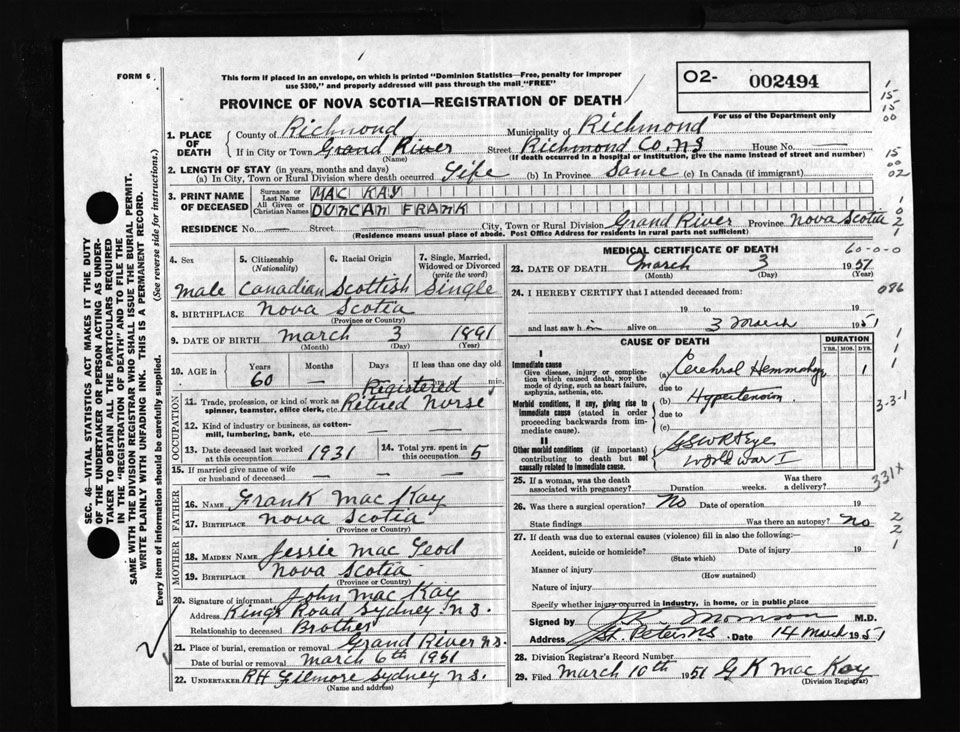 FORM 6
This form if placed in an envelope, on which is printed "Dominion Statistics—Free, penalty for improper
use $300," and properly addressed will pass through the mail "FREE"
02- 002494
For use of the Department only
PROVINCE OF NOVA SCOTIA—REGISTRATION OF DEATH
1. PLACE OF DEATH
County of Richmond Municipality of Richmond
If in City or Town Grand River Street Richmond Co. NS House No. —
(Name) (If death occurred in a hospital or institution, give name instead of street and number)
2. LENGTH OF STAY (in years, months and days)
(a) In City, Town or Rural Division where death occurred Life (b) In Province Same (c) In Canada (if immigrant)
3. PRINT NAME OF DECEASED
Surname or Last Name MAC KAY
All Given or Christian Names DUNCAN FRANK
RESIDENCE No. — Street — City, Town or Rural Division Grand River Province Nova Scotia
(Residence means usual place of abode. Post Office Address for residents in rural parts not sufficient)
4. Sex
male
5. Citizenship
(Nationality)
Canadian
6. Racial Origin
Scottish
7. Single, Married, Widowed or Divorced
(write the word)
Single
8. BIRTHPLACE Nova Scotia
(Province or Country)
9. DATE OF BIRTH March 3 1891
(Month) (Day) (Year)
10. AGE in Years Months Days If less than one day old
60 — min.
OCCUPATION
Registered
11. Trade, profession, or kind of work as Retired Nurse
spinner, teamster, office clerk, etc.
12. Kind of industry or business, as cotton-
mill, lumbering, bank, etc. —
13. Date deceased last worked at this occupation 1931
14. Total yrs. spent in this occupation 5
15. If married give name of wife
or husband of deceased —
FATHER
16. NAME Frank Mac Kay
17. BIRTHPLACE Nova Scotia
(Province or Country)
MOTHER
18. MAIDEN NAME Jessie Mac Leod
19. BIRTHPLACE Nova Scotia
(Province or Country)
20. Signature of informant John Mac Kay
Address Kings Road Sydney N.S.
Relationship to deceased Brother
21. Place of burial, cremation or removal Grand River N.S.
Date of burial or removal March 6th 1951
22. UNDERTAKER RH Gilmore Sydney N.S.
(Name and address)
MEDICAL CERTIFICATE OF DEATH
60-0-0
23. DATE OF DEATH March 3 1951
(Month) (Day) (Year)
24. I HEREBY CERTIFY that I attended deceased from:
19 to 19
and last saw him alive on 3 March 1951
CAUSE OF DEATH
DURATION
YRS. MOS. DYS.
I
Immediate cause
Give disease, injury or complica-
tion which caused death, NOT the
mode of dying, such as heart failure,
asphyxia, asthenia, etc.
(a) Cerebral Hemmohage 1
due to
Morbid conditions, if any, giving rise to
immediate cause (stated in order
proceeding backwards from im-
mediate cause).
(b) Hypertension
due to
(c)
II
Other morbid conditions (if important)
contributing to death but not
causally related to immediate cause.
GSW Rt Eye
World War I
25. If a woman, was the death associated with pregnancy? Duration weeks. Was there a delivery?
26. Was there a surgical operation? No Date of operation 19
State findings Was there an autopsy? No
27. If death was due to external causes (violence) fill in also the following:—
Accident, suicide or homicide? Date of injury 19
(State which)
Manner of injury
(How sustained)
Nature of injury
Specify whether injury occurred in industry, in home, or in public place
Signed by M.D.
Address St. Peters NS Date 14 March 1951
28. Division Registrar's Record Number
29. Filed March 10th 1951 G K Mac Kay
(Division Registrar)
SEC. 46—VITAL STATISTICS ACT MAKES IT THE DUTY
OF THE UNDERTAKER OR PERSON ACTING AS UNDER-
TAKER TO OBTAIN ALL THE PARTICULARS REQUIRED
IN THE "REGISTRATION OF DEATH" AND TO FILE THE
SAME WITH THE DIVISION REGISTRAR WHO SHALL ISSUE THE BURIAL PERMIT.
WRITE PLAINLY WITH UNFADING INK. THIS IS A PERMANENT RECORD.
Every item of information should be carefully supplied. (See reverse side for instructions.)
15
15
00
15
00
02
1
0
2
1
086
1
1
1
1
3-3-1
331X
2
2
1